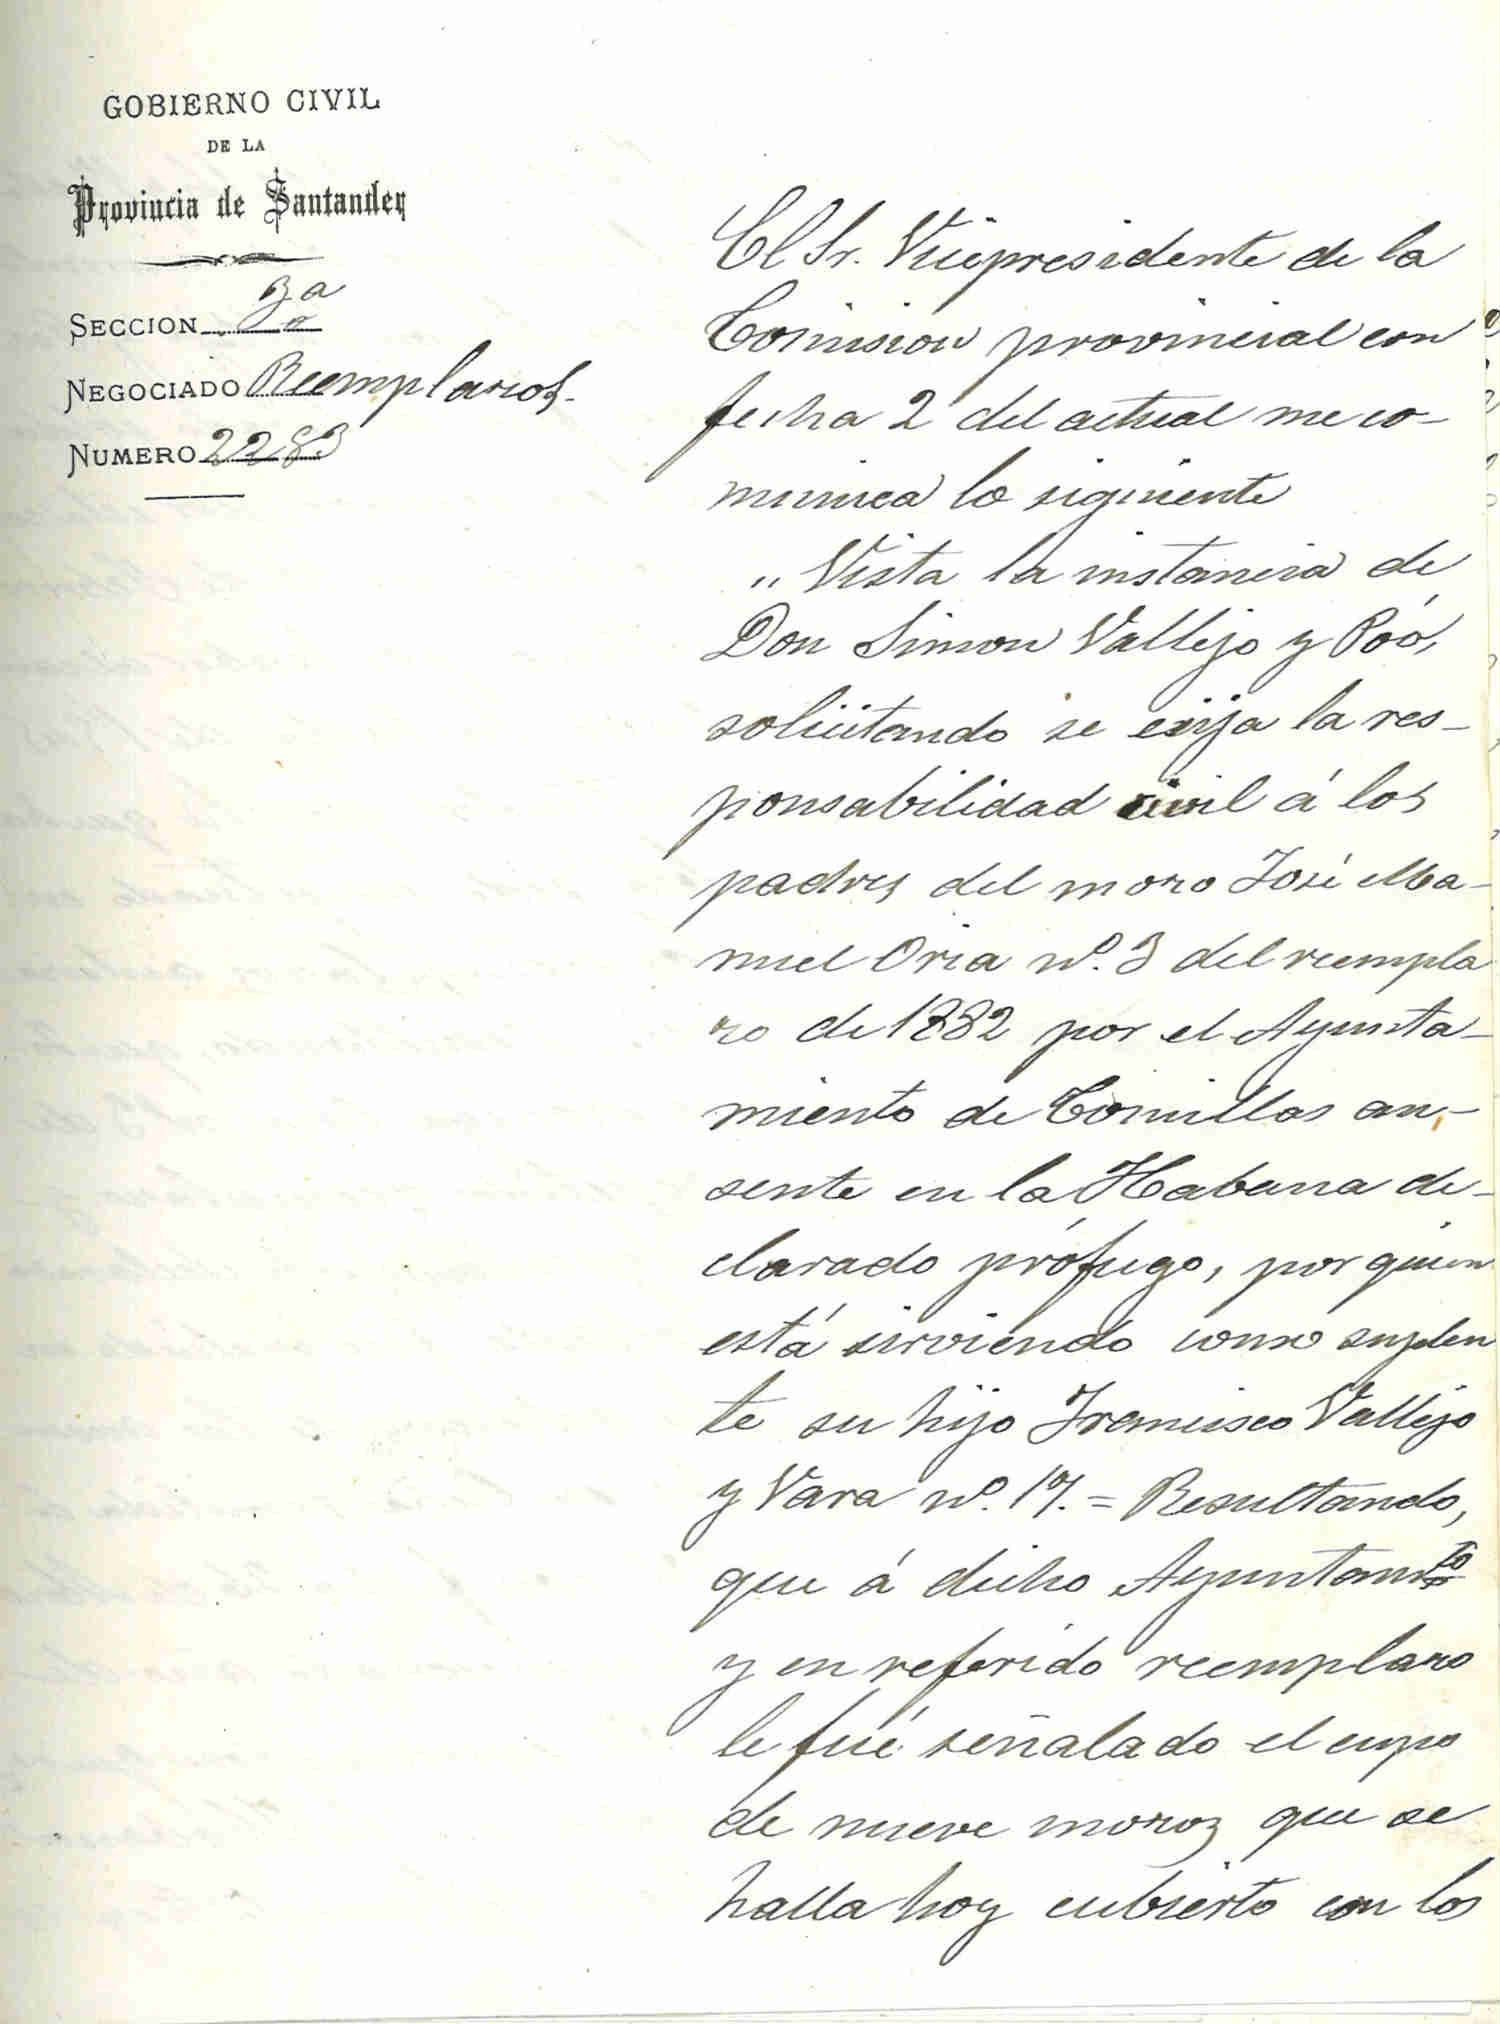 GOBIERNO CIVIL
DE LA
Provincia de Santander
SECCION 3a
NEGOCIADO Reemplazos.
NUMERO 2283
El Sr. Vicepresidente de la
Comision provincial con
fecha 2 del actual me co-
munica lo siguiente
"Vista la instancia de
Don Simon Vallejo y Póo,
solicitando se exija la res-
ponsabilidad civil á los
padres del mozo José Ma-
nuel Oria nº. 3 del reempla
zo de 1882 por el Ayunta-
miento de Comillas au-
sente en la Habana de-
clarado prófugo, por quien
está sirviendo como suplen
te su hijo Francisco Vallejo
y Vara nº. 17. = Resultando,
que á dicho Ayuntamto
y en referido reemplazo
le fué señalado el cupo
de nueve mozos que se
halla hoy cubierto con los